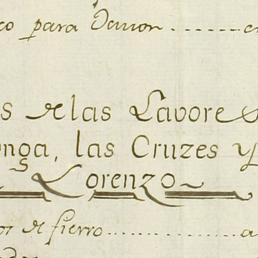 co para Davon ....... e
s de las Lavore
onga, las Cruzes y
Lorenzo
os de fierro ............. a